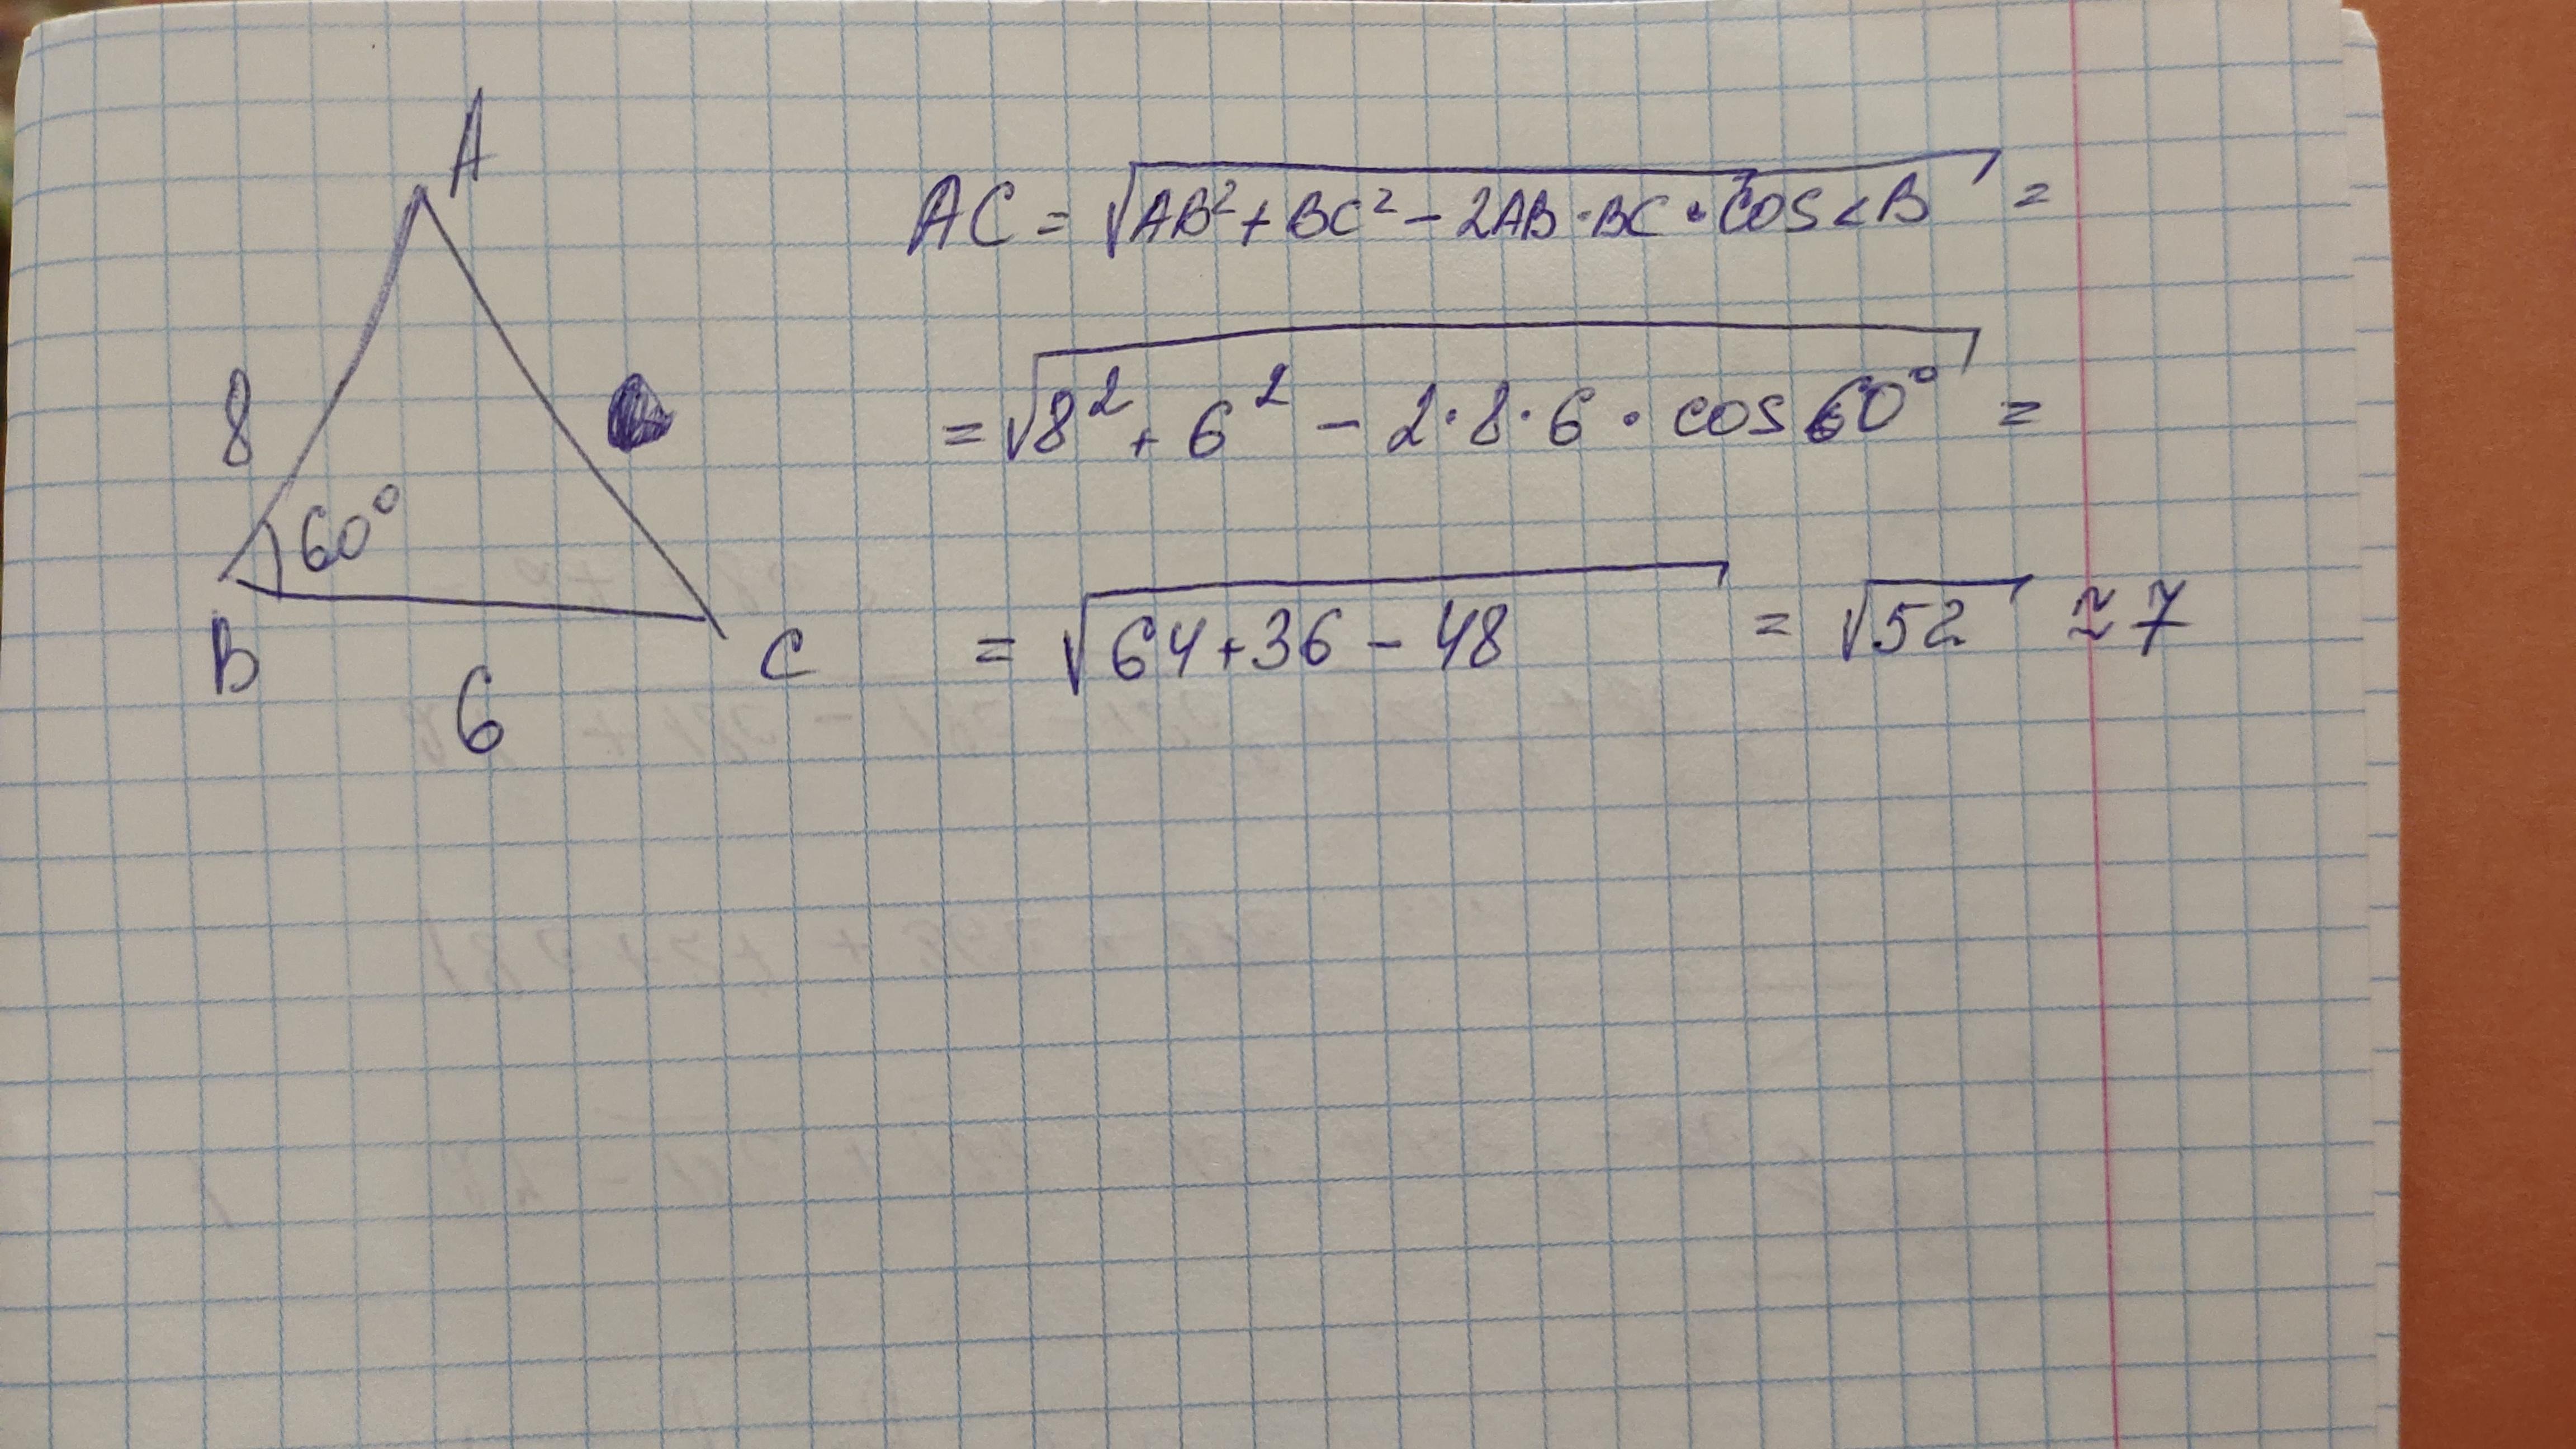 A
8
60°
B
6
C
AC = √AB² + BC² - 2AB · BC · cos < B =
= √8² + 6² - 2 · 8 · 6 · cos 60° =
= √64 + 36 - 48 = √52 ≈ 7